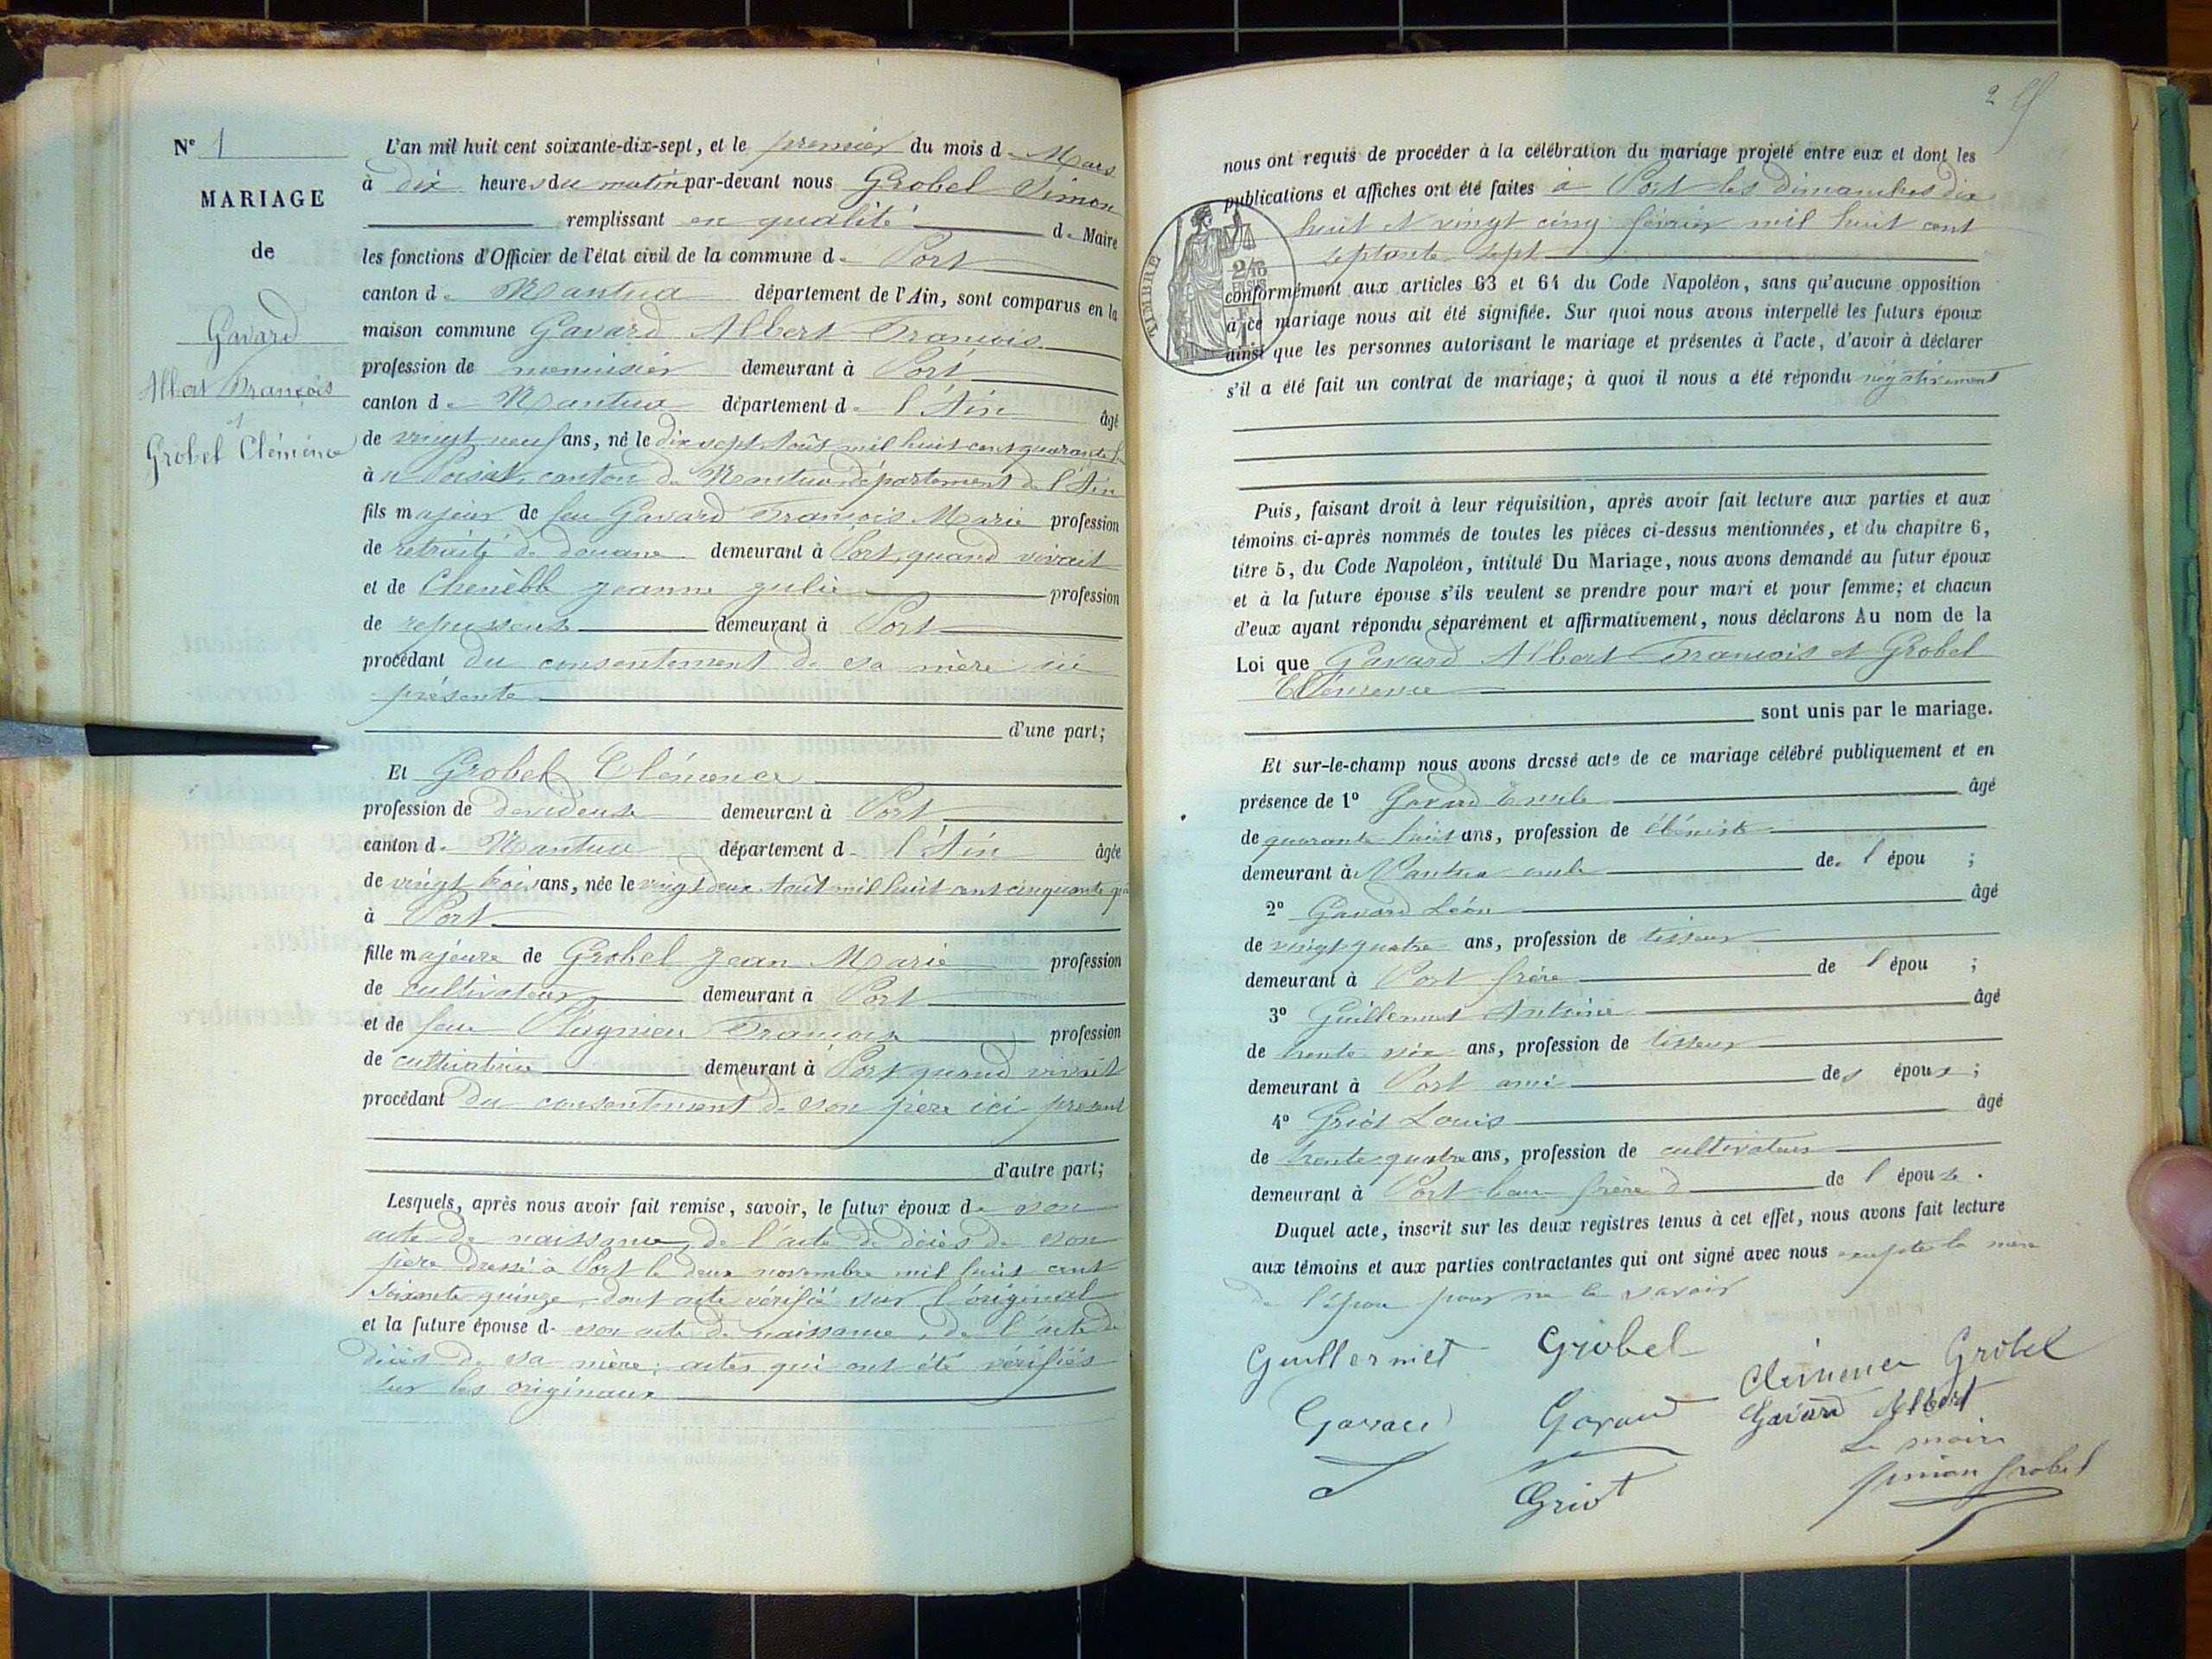 N° 1
MARIAGE
de
Gavard
Albert François
et
Grobel Clémence
L'an mil huit cent soixante-dix-sept, et le premier du mois de Mars
à dix heures du matin par-devant nous Grobel Simon
remplissant en qualité de Maire
les fonctions d'Officier de l'état civil de la commune de Port
canton de Nantua département de l'Ain, sont comparus en la
maison commune Gavard Albert François
profession de menuisier demeurant à Port
canton de Nantua département de l'Ain âgé
de vingt neuf ans, né le dix sept Août mil huit cent quarante
à Poisat canton de Nantua département de l'Ain
fils majeur de feu Gavard François Marie profession
de retraité de douane demeurant à Port, quand vivait
et de Jeanne Julie profession
de demeurant à Port
procédant du consentement de sa mère ici
présente
d'une part;
Et Grobel Clémence
profession de devideuse demeurant à Port
canton de Nantua département de l'Ain âgée
de vingt trois ans, née le vingt deux Août mil huit cent cinquante
à Port
fille majeure de Grobel Jean Marie profession
de cultivateur demeurant à Port
et de feue profession
de cultivatrice demeurant à Port quand vivait
procédant du consentement de son père ici present
d'autre part;
Lesquels, après nous avoir fait remise, savoir, le futur époux de son
acte de naissance, de l'acte de décès de son
père dressé à Port le deux novembre mil huit cent
soixante quinze, dont acte vérifié sur l'original
et la future épouse de son acte de naissance, de l'acte de
décès de sa mère; actes qui ont été vérifiés
sur les originaux
2
nous ont requis de procéder à la célébration du mariage projeté entre eux et dont les
publications et affiches ont été faites à Port les dimanches dix
huit et vingt cinq février mil huit cent
septante sept
TIMBRE
conformément aux articles 63 et 64 du Code Napoléon, sans qu'aucune opposition
à ce mariage nous ait été signifiée. Sur quoi nous avons interpellé les futurs époux
ainsi que les personnes autorisant le mariage et présentes à l'acte, d'avoir à déclarer
s'il a été fait un contrat de mariage; à quoi il nous a été répondu négativement
Puis, faisant droit à leur réquisition, après avoir fait lecture aux parties et aux
témoins ci-après nommés de toutes les pièces ci-dessus mentionnées, et du chapitre 6,
titre 5, du Code Napoléon, intitulé Du Mariage, nous avons demandé au futur époux
et à la future épouse s'ils veulent se prendre pour mari et pour femme; et chacun
d'eux ayant répondu séparément et affirmativement, nous déclarons Au nom de la
Loi que Gavard Albert François et Grobel
Clémence
sont unis par le mariage.
Et sur-le-champ nous avons dressé acte de ce mariage célébré publiquement et en
présence de 1° Gavard Emile âgé
de quarante huit ans, profession de ébéniste
demeurant à Nantua oncle de l'épou ;
2° Gavard Léon âgé
de vingt quatre ans, profession de tisseur
demeurant à Port frère de l'épou ;
3° Guillermet Antoine âgé
de trente six ans, profession de tisseur
demeurant à Port ami des époux ;
4° Griot Louis âgé
de trente quatre ans, profession de cultivateur
demeurant à Port beau frère d de l'épouse .
Duquel acte, inscrit sur les deux registres tenus à cet effet, nous avons fait lecture
aux témoins et aux parties contractantes qui ont signé avec nous excepté la mère
de l'épou pour ne le savoir
Guillermet Grobel
Clémence Grobel
Gavard Gavard Gavard Albert
Le maire
Griot Simon Grobel